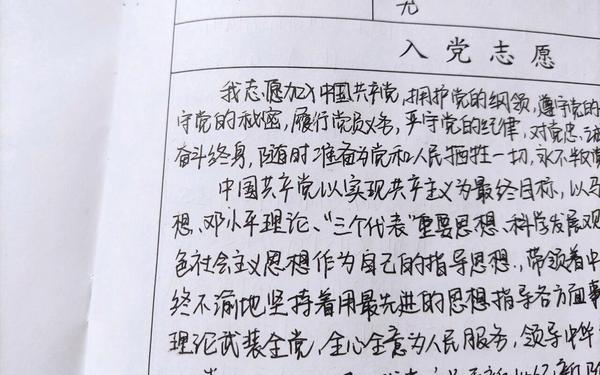 无
入党志愿
我志愿加入中国共产党,拥护党的纲领,遵守党的
守党的秘密,履行党员义务,严守党的纪律,对党忠诚
奋斗终身,随时准备为党和人民牺牲一切,永不叛党
中国共产党以实现共产主义为最终目标,以马
想、邓小平理论、“三个代表”重要思想、科学发展观
色社会主义思想作为自己的指导思想,带领着中
终不渝地坚持着用最先进的思想指导各方面事
理论武装全党,全心全意为人民服务,领导中华